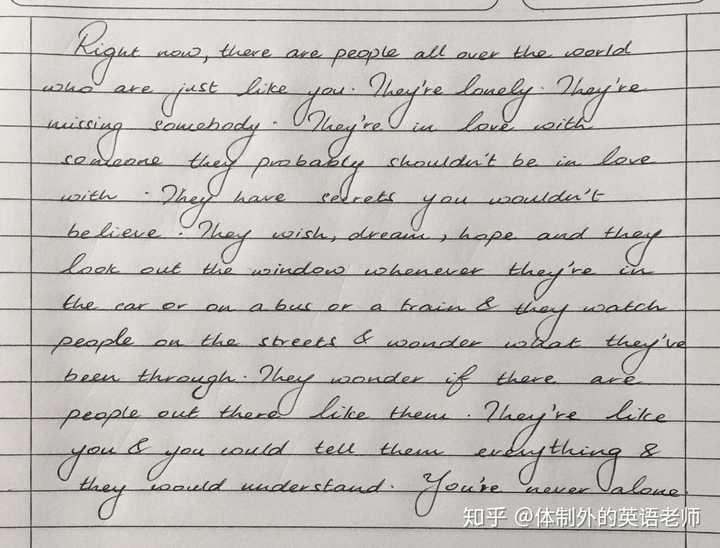 Right now, there are people all over the world
who are just like you. They're lonely. They're
missing somebody. They're in love with
someone they probably shouldn't be in love
with. They have secrets you wouldn't
believe. They wish, dream, hope and they
look out the window whenever they're in
the car or on a bus or a train & they watch
people on the streets & wonder what they've
been through. They wonder if there are
people out there like them. They're like
you & you could tell them everything &
they would understand. You're never alone.
知乎 @体制外的英语老师